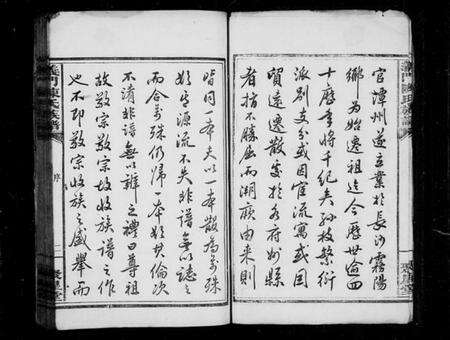 官潭州遂立業於長沙霧陽
鄉为始遷祖迄今歷世逾四
十歷年將千紀矣孙枝繁衍
派別支分或因官流寓或因
貿遠遷散處於各府州縣
者指不勝屈而溯厥由来則
皆同一本夫以一本散為萬殊
欲其源流不失非譜無以誌之
而合萬殊仍歸一本欲其倫次
不淆非譜無以辨之禮曰尊祖
故敬宗敬宗故收族譜之作
也不即敬宗收族之盛舉而
義門陳氏族譜
序
聚星堂